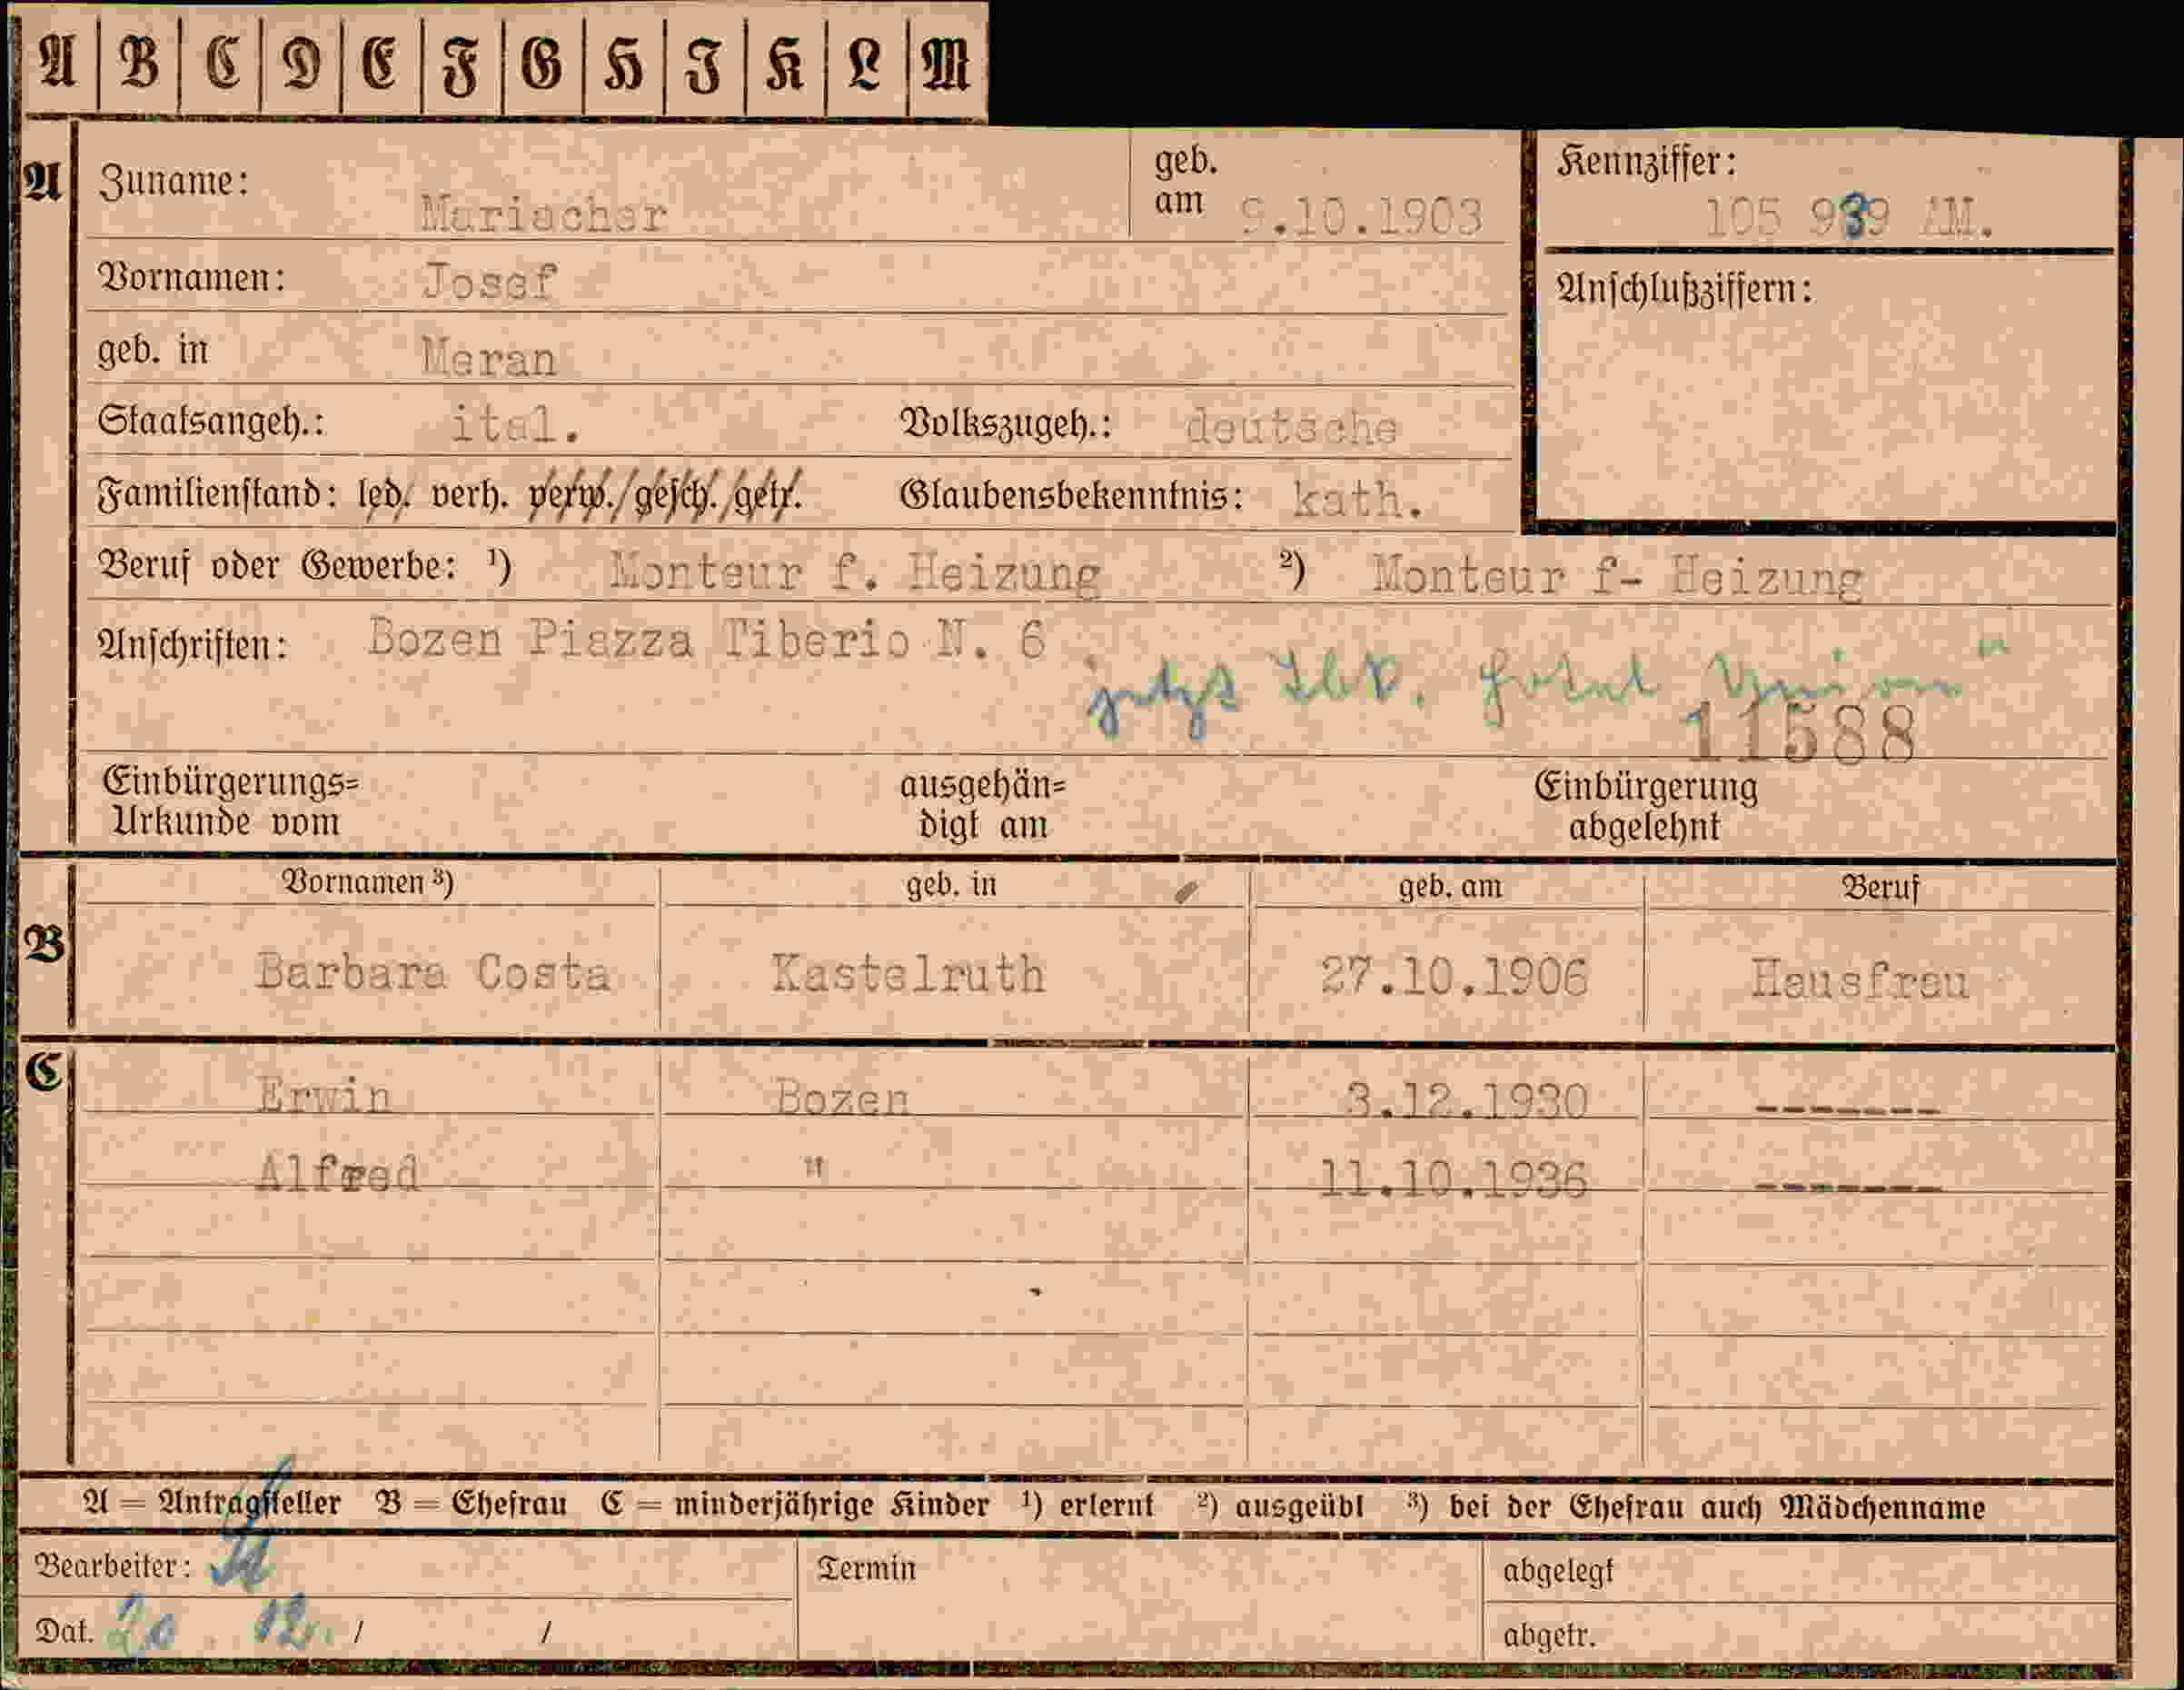 A B C D E F G H I K L M
A Zuname: Mariacher geb. am 9.10.1903 Kennziffer: 105 939 AM.
Vornamen: Josef Anschlußziffern:
geb. in Meran
Staatsangeh.: ital. Volkszugeh.: deutsche
Familienstand: led. verh. verw./gesch./getr. Glaubensbekenntnis: kath.
Beruf oder Gewerbe: ¹) Monteur f. Heizung ²) Monteur f- Heizung
Anschriften: Bozen Piazza Tiberio N. 6
jetzt Ibk. Hotel Union"
11588
Einbürgerungs= ausgehän= Einbürgerung
Urkunde vom digt am abgelehnt
Vornamen ³) geb. in geb. am Beruf
B Barbara Costa Kastelruth 27.10.1906 Hausfrau
C Erwin Bozen 3.12.1930 -------
Alfred " 11.10.1936 -------
A = Antragsteller B = Ehefrau C = minderjährige Kinder ¹) erlernt ²) ausgeübt ³) bei der Ehefrau auch Mädchenname
Bearbeiter: Termin abgelegt
Dat. 20. 12. / / abgetr.